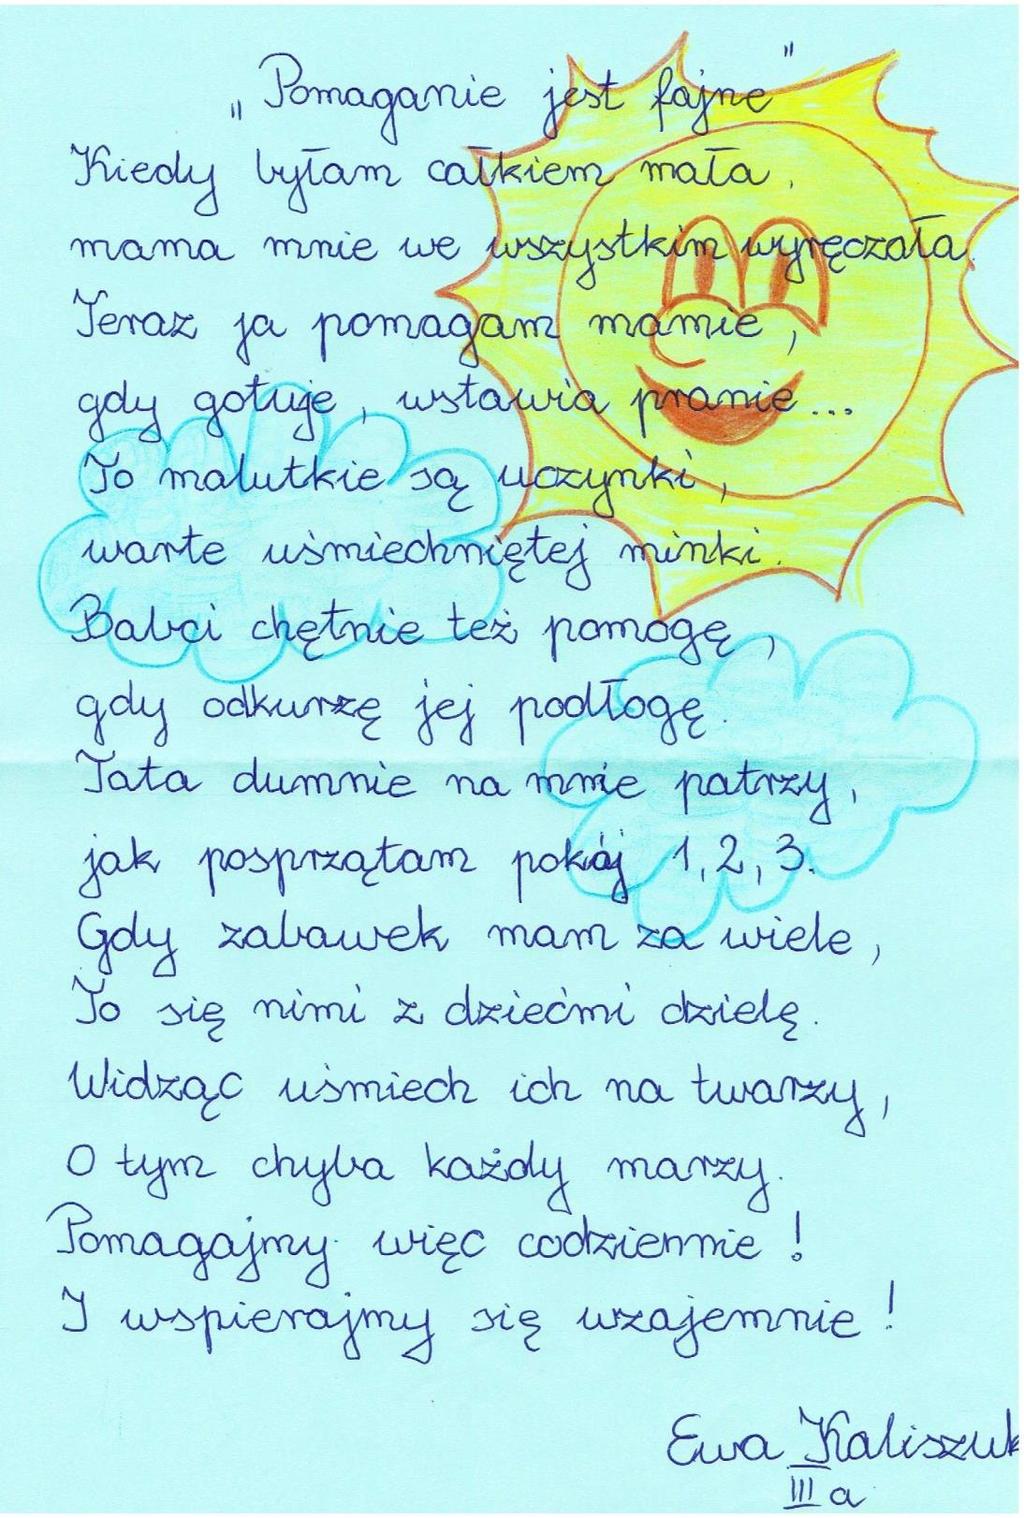 „Pomaganie jest fajne"
Kiedy byłam całkiem mała,
mama mnie we wszystkim wyręczała.
Teraz ja pomagam mamie,
gdy gotuje, wstawia pranie...
To malutkie są uczynki,
warte uśmiechniętej minki.
Babci chętnie też pomogę,
gdy odkurzę jej podłogę.
Tata dumnie na mnie patrzy,
jak posprzątam pokój 1, 2, 3.
Gdy zabawek mam za wiele,
To się nimi z dziećmi dzielę.
Widząc uśmiech ich na twarzy,
O tym chyba każdy marzy.
Pomagajmy więc codziennie!
I wspierajmy się wzajemnie!
Ewa Kaliszuk
III a